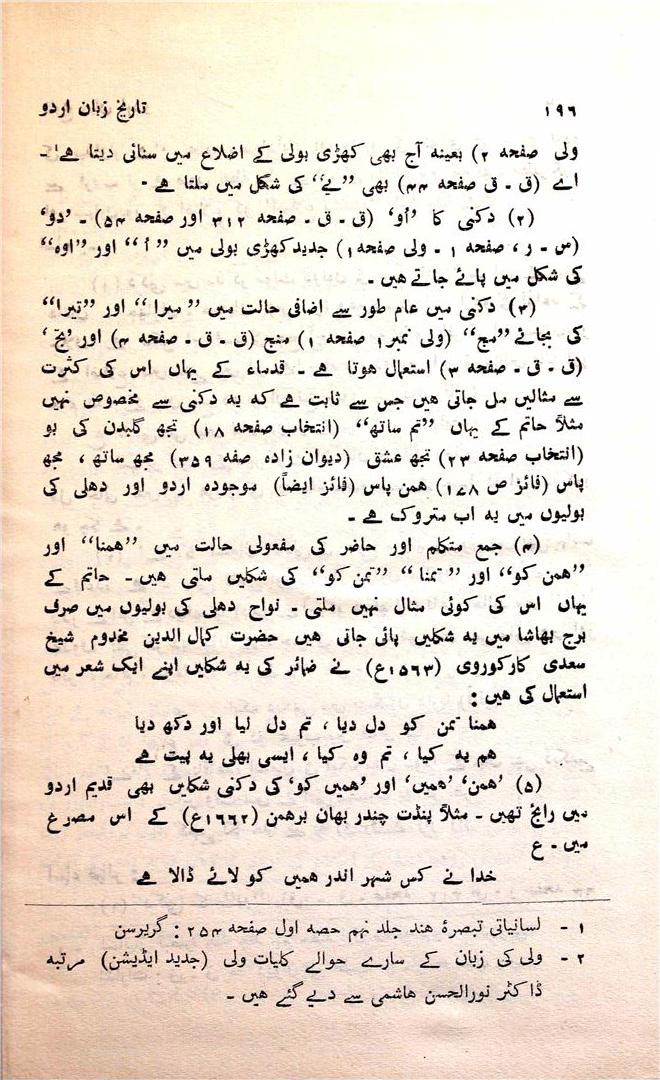 ۱۹۶
تاریخ زبان اردو
ولی صفحہ ۲) بعینہ آج بھی کھڑی بولی کے اضلاع میں سنائی دیتا ہے' ۔
اے (ق ۔ ق صفحہ ۴۴) بھی ”یے“ کی شکل میں ملتا ہے ۔
(۲) دکنی کا 'أو' (ق ۔ ق ۔ صفحہ ۳۱۲ اور صفحہ ۵۴) ۔ 'دو'
(س ۔ ر، صفحہ ۱ ۔ ولی صفحہ ۱) جدید کھڑی بولی میں ”اُ“ اور ”اوہ“
کی شکل میں پائے جاتے ہیں ۔
(۳) دکنی میں عام طور سے اضافی حالت میں ”میرا“ اور ”تیرا“
کی بجائے ”مج“ (ولی نمبر ۱ صفحہ ۱) منج (ق ۔ ق ۔ صفحہ ۴) اور
(ق ۔ ق ۔ صفحہ ۳) استعمال ہوتا ہے ۔ قدماء کے یہاں اس کی کثرت
سے مثالیں مل جاتی ہیں جس سے ثابت ہے کہ یہ دکنی سے مخصوص نہیں
مثلاً حاتم کے یہاں ”تم ساتھ“ (انتخاب صفحہ ۱۸) تجھ گلبدن کی بو
(انتخاب صفحہ ۲۳) تجھ عشق (دیوان زادہ صفہ ۳۵۹) مجھ ساتھ ، مجھ
پاس (فائز ص ۱۷۸) ہمن پاس (فائز ایضاً) موجودہ اردو اور دہلی کی
بولیوں میں یہ اب متروک ہے ۔
(۴) جمع متکلم اور حاضر کی مفعولی حالت میں ”ہمنا“ اور
”ہمن کو“ اور ”تمنا“ ”تمن کو“ کی شکلیں ملتی ہیں ۔ حاتم کے
یہاں اس کی کوئی مثال نہیں ملتی ۔ نواح دہلی کی بولیوں میں صرف
برج بھاشا میں یہ شکلیں پائی جاتی ہیں حضرت کمال الدین مخدوم شیخ
سعدی کارکوروی (۱۵۶۳ع) نے ضمائر کی یہ شکلیں اپنے ایک شعر میں
استعمال کی ہیں :
ہمنا تمن کو دل دیا ، تم دل لیا اور دکھ دیا
ہم یہ کیا ، تم وہ کیا ، ایسی بھلی یہ پیت ہے
(۵) 'ہمن' 'ہمیں' اور 'ہمیں کو' کی دکنی شکلیں بھی قدیم اردو
میں رائج تھیں ۔ مثلاً پنڈت چندر بھان برہمن (۱۶۶۲ع) کے اس مصرع
میں ۔ ع
خدا نے کس شہر اندر ہمیں کو لائے ڈالا ہے
۱ ۔ لسانیاتی تبصرۂ ہند جلد نہم حصہ اول صفحہ ۲۵۴ : گریرسن
۲ ۔ ولی کی زبان کے سارے حوالے کلیات ولی (جدید ایڈیشن) مرتبہ
ڈاکٹر نورالحسن ہاشمی سے دیے گئے ہیں ۔